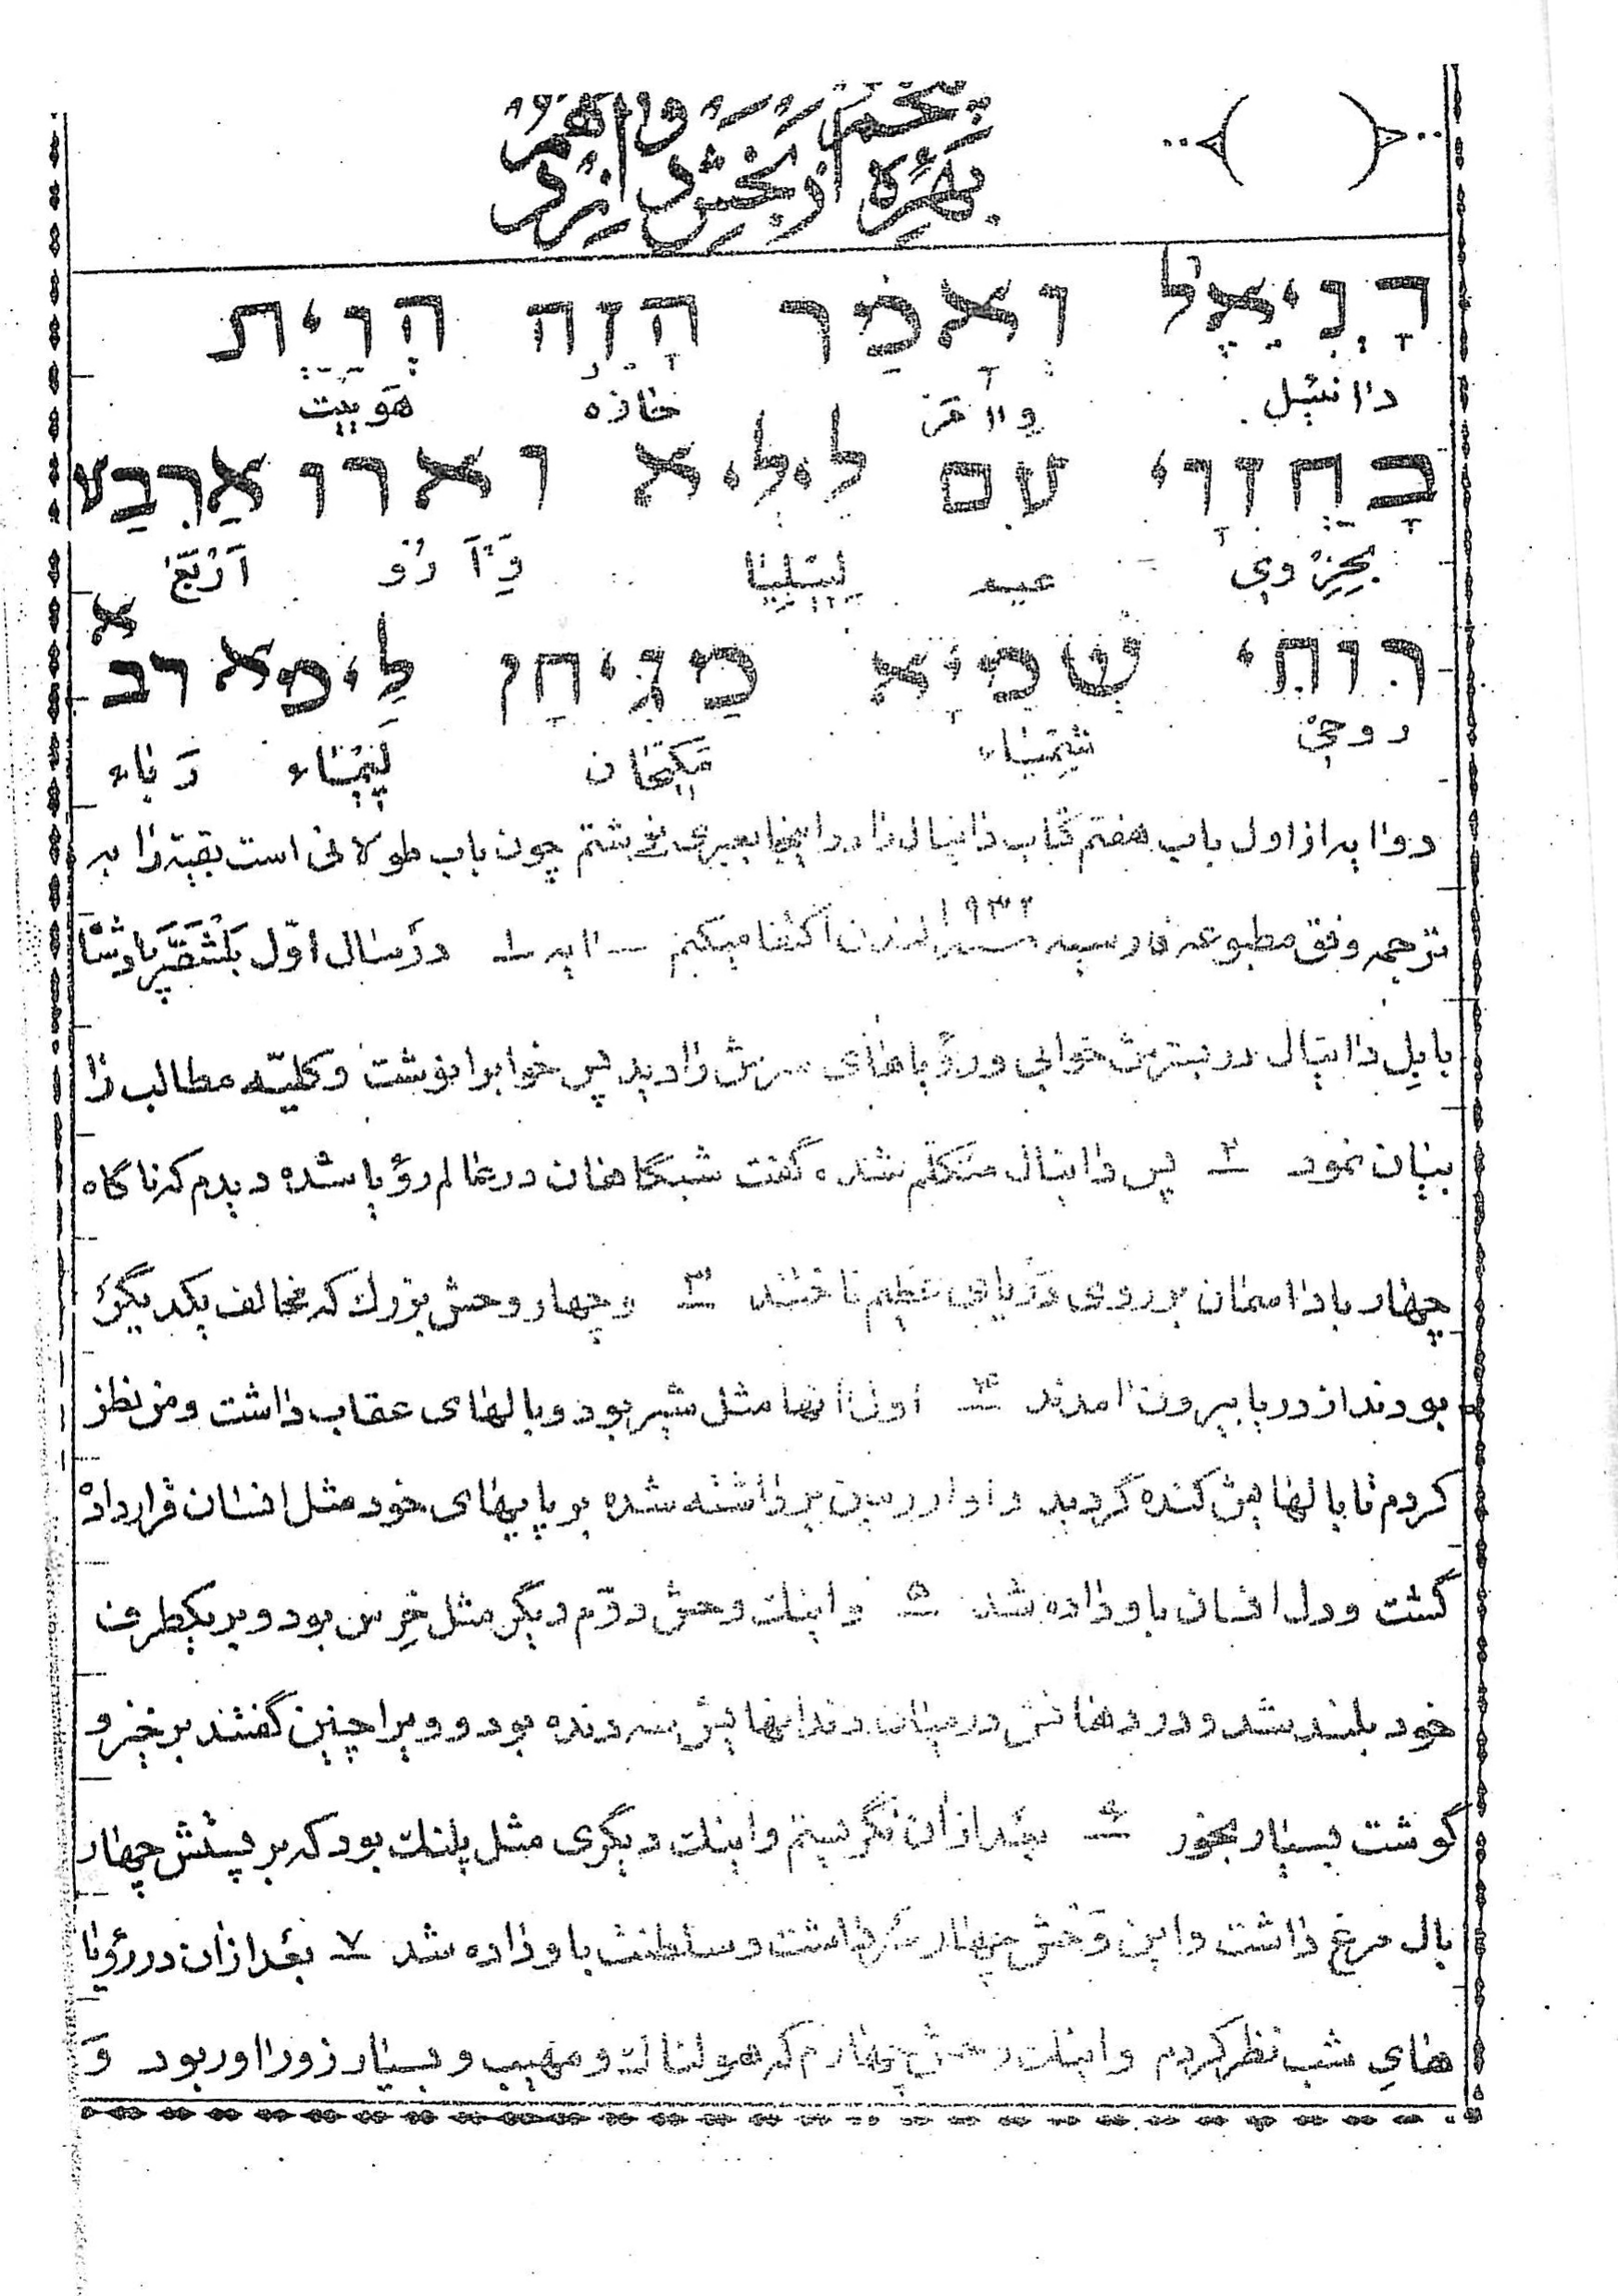 דָנִיֵאל וְאָמַר חָזֵה הֲוֵית
دانئیل وِاامَر خازه هَوِیت
בְּחֶזְוִי עִם לֵילְיָא וַאֲרוּ אַרְבַּע
بِحِزْوِی عیم لِیلِیا وَآرُو اَرْبَع
רוּחֵי שְׁמַיָא מְגִיחָן לְיַמָא רבא
روحِی شِمَیاء مَکیحان لَیَمّاء رَباء
دو ایه از اول باب هفتم کتاب دانیال را در اینجا بعبری نوشتم چون باب طولانی است بقیه را به
ترجمه وفق مطبوعه فارسیه ۱۹۳۲ لندن اکتفا میکنم - ایه ۱ در سال اوّل بَلْشَصَّر پادشاه
بابِل دانیال در بسترش خوابی و رؤیاهای سرش را دید پس خوابرا نوشت و کلیّه مطالب را
بیان نمود ۲ پس دانیال متکلم شده گفت شبگاهان در عالم رؤیا شده دیدم که ناگاه
چهار باد اسمان بر روی دریای عظیم تاختند ۳ و چهار وحش بزرك که مخالف یکدیگر
بودند از دریا بیرون امدند ۴ اول انها مثل شیر بود و بالهای عقاب داشت و من نظر
کردم تا بالهایش کنده گردید و او از زمین برداشته شده بر پایهای خود مثل انسان قرار داده
گشت و دل انسان باو داده شد ۵ و اینك وحش دوّم دیگر مثل خِرس بود و بر یکطرف
خود بلند شد و در دهانش در میان دندانهایش سه دنده بود و ویرا چنین گفتند برخیز و
گوشت بسیار بخور ۶ بعد از ان نگریستم و اینك دیگری مثل پلنك بود که بر پشتش چهار
بال مرغ داشت و این وَحش چهار سر داشت و سلطنت باو داده شد ۷ بعد از ان در رؤیا
هایِ شب نظر کردم و اینك وحش چهارم که هولناك و مهیب و بسیار زوراور بود وَ